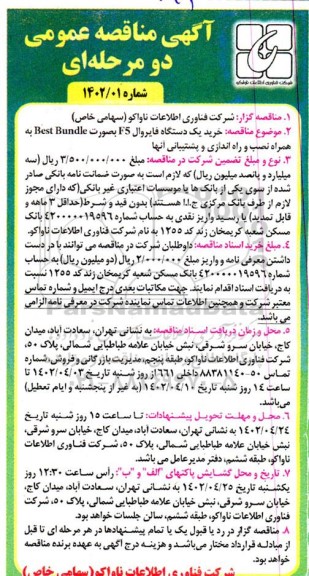 آگهی مناقصه عمومی
دو مرحله‌ای
شماره ۱۴۰۲/۰۱
شرکت فناوری اطلاعات ناواکو
۱. مناقصه گزار: شرکت فناوری اطلاعات ناواکو (سهامی خاص)
۲. موضوع مناقصه: خرید یک دستگاه فایروال F5 بصورت Best Bundle به
همراه نصب و راه اندازی و پشتیبانی آنها
۳. نوع و مبلغ تضمین شرکت در مناقصه: مبلغ ۳/۵۰۰/۰۰۰/۰۰۰ ریال (سه
میلیارد و پانصد میلیون ریال) که لازم است به صورت ضمانت نامه بانکی صادر
شده از سوی یکی از بانک ها یا موسسات اعتباری غیر بانکی(که دارای مجوز
لازم از طرف بانک مرکزی ج.ا.ا هستند) بدون قید و شرط(حداقل ۳ ماهه و
قابل تمدید) یا رسید واریز نقدی به حساب شماره ۴۲۰۰۰۰۰۱۹۵۹۶ بانک
مسکن شعبه کریمخان زند کد ۱۲۵۵ به نام شرکت فناوری اطلاعات ناواکو.
۴. مبلغ خرید اسناد مناقصه: داوطلبان شرکت در مناقصه می توانند با در دست
داشتن معرفی نامه و واریز مبلغ ۲/۰۰۰/۰۰۰ ریال (دو میلیون ریال) به حساب
شماره ۴۲۰۰۰۰۰۱۹۵۹۶ بانک مسکن شعبه کریمخان زند کد ۱۲۵۵ نسبت
به دریافت اسناد اقدام نمایند. جهت مکاتبات بعدی درج ایمیل و شماره تماس
معتبر شرکت و همچنین اطلاعات تماس نماینده شرکت در معرفی نامه الزامی
می باشد.
۵. محل و زمان دریافت اسناد مناقصه: به نشانی تهران، سعادت آباد، میدان
کاج، خیابان سرو شرقی، نبش خیابان علامه طباطبایی شمالی، پلاک ۵۰،
شرکت فناوری اطلاعات ناواکو، طبقه پنجم، مدیریت بازرگانی و فروش، شماره
تماس ۸۸۳۸۱۱۴۰-۵۰ داخلی ۶۶۱ از روز شنبه تاریخ ۱۴۰۲/۰۴/۰۳ تا
ساعت ۱۴ روز شنبه تاریخ ۱۴۰۲/۰۴/۱۰ (به غیر از پنجشنبه و ایام تعطیل)
می‌باشد.
۶. محل و مهلت تحویل پیشنهادات: تا ساعت ۱۵ روز شنبه تاریخ
۱۴۰۲/۰۴/۲۴ به نشانی تهران، سعادت آباد، میدان کاج، خیابان سرو شرقی،
نبش خیابان علامه طباطبایی شمالی، پلاک ۵۰، شرکت فناوری اطلاعات
ناواکو، طبقه ششم، دفتر مدیرعامل می باشد.
۷. تاریخ و محل گشایش پاکتهای "الف" و "ب": رأس ساعت ۱۲:۳۰ روز
یکشنبه تاریخ ۱۴۰۲/۰۴/۲۵ به نشانی تهران، سعادت آباد، میدان کاج،
خیابان سرو شرقی، نبش خیابان علامه طباطبایی شمالی، پلاک ۵۰، شرکت
فناوری اطلاعات ناواکو، طبقه ششم، سالن جلسات خواهد بود.
۸. مناقصه گزار در رد یا قبول یک یا تمام پیشنهادها در هر مرحله ای تا قبل
از مبادله قرارداد مختار می‌باشد و هزینه درج آگهی به عهده برنده مناقصه
خواهد بود.
شرکت فناوری اطلاعات ناواکو (سهامی خاص)